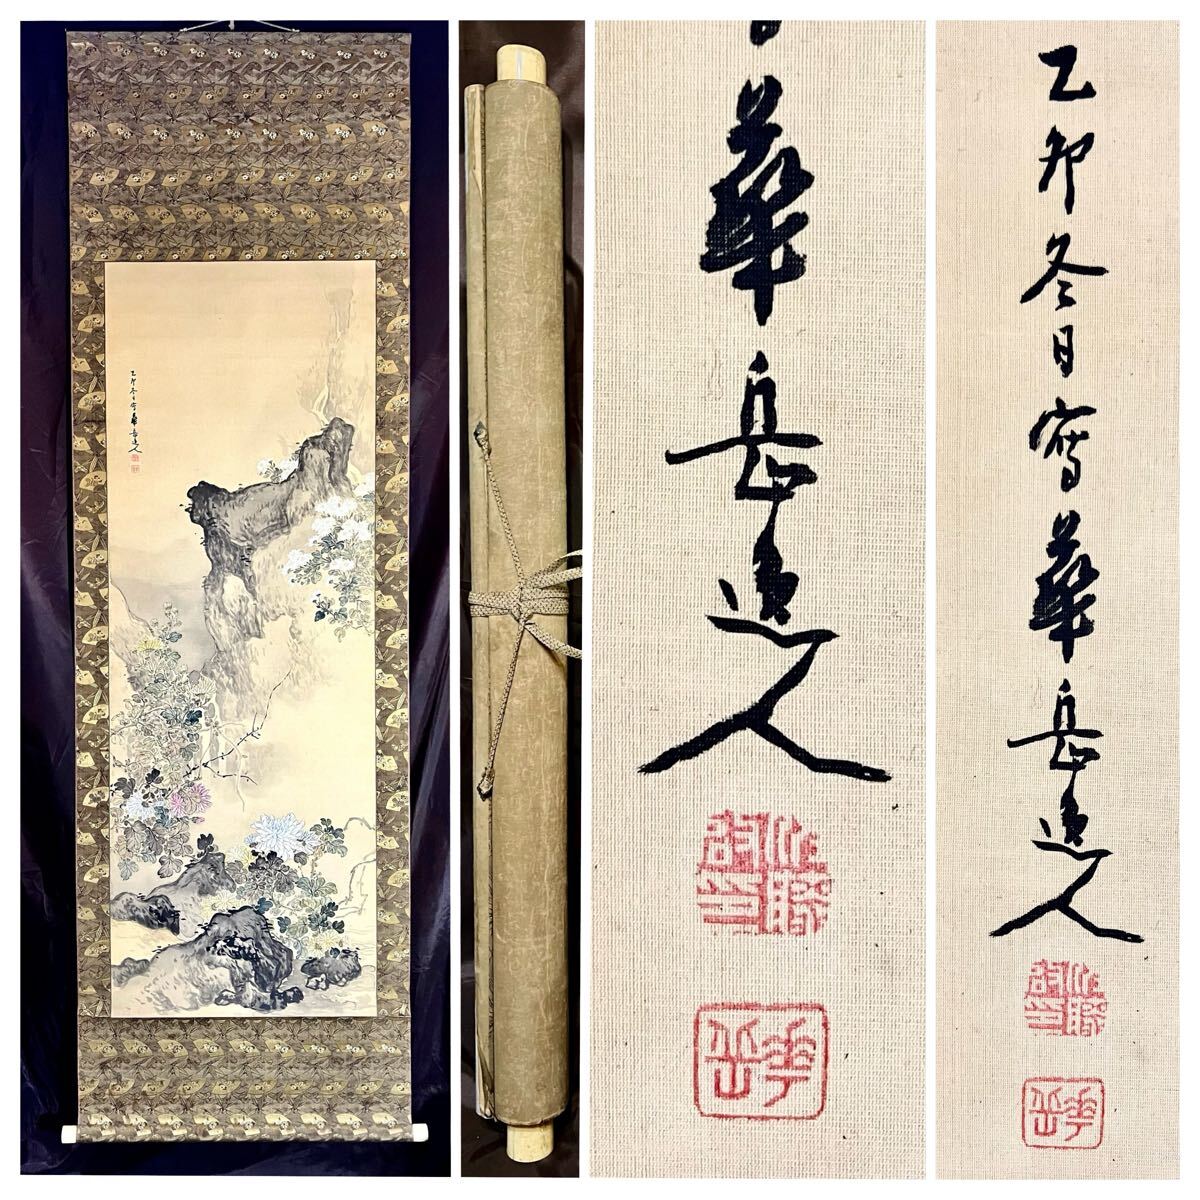 乙卯冬日寫華岳逸人
華岳逸人
華岳
乙卯冬日寫華岳逸人
華岳